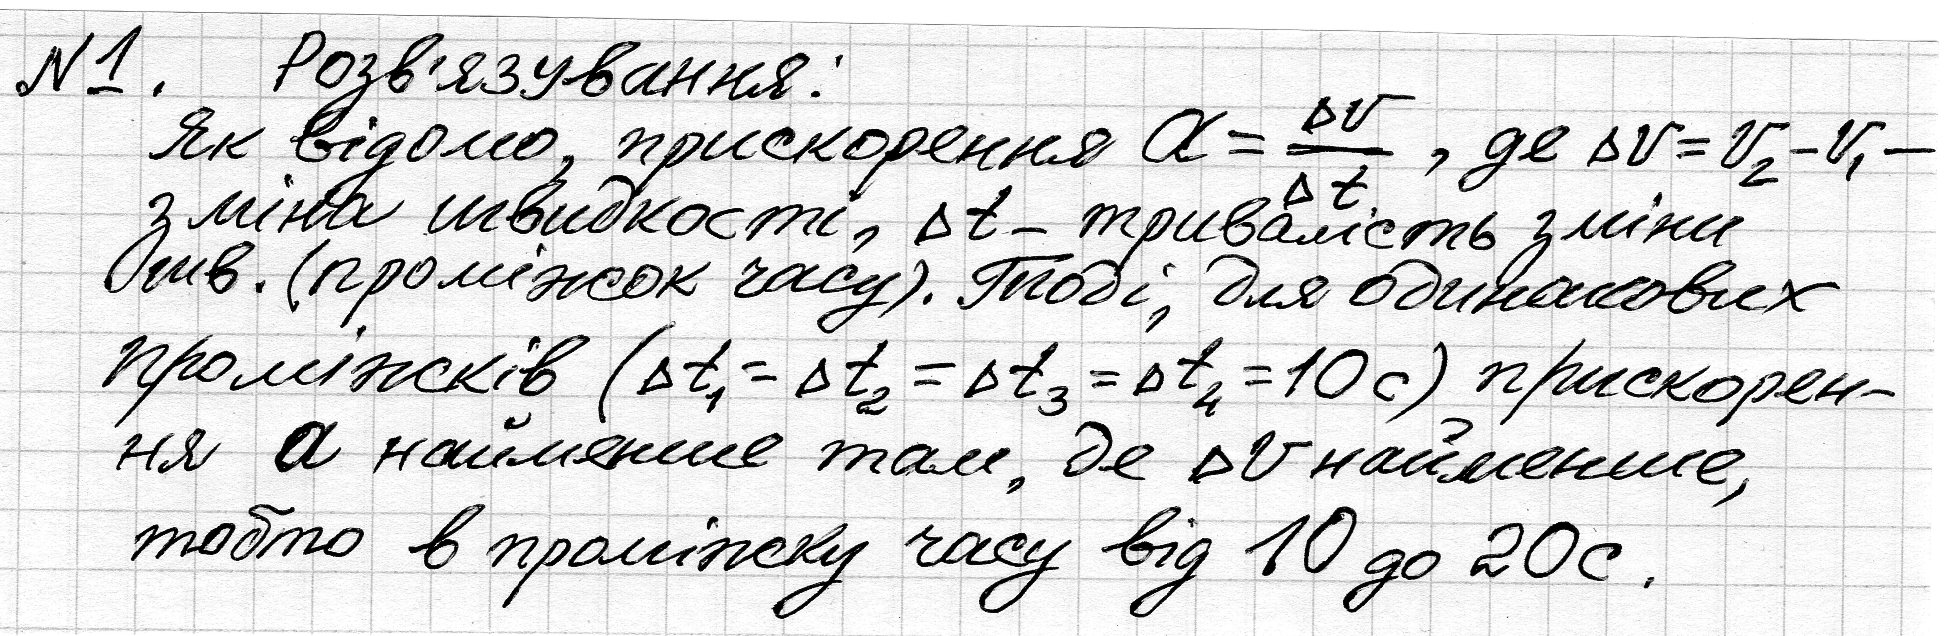 №1. Розв'язування:
Як відомо, прискорення a = Δv/Δt, де Δv = v₂ - v₁ -
зміна швидкості, Δt - тривалість зміни
шв. (проміжок часу). Тоді, для одинакових
проміжків (Δt₁ = Δt₂ = Δt₃ = Δt₄ = 10 с) прискорен-
ня a найменше там, де Δv найменше,
тобто в проміжку часу від 10 до 20 с.